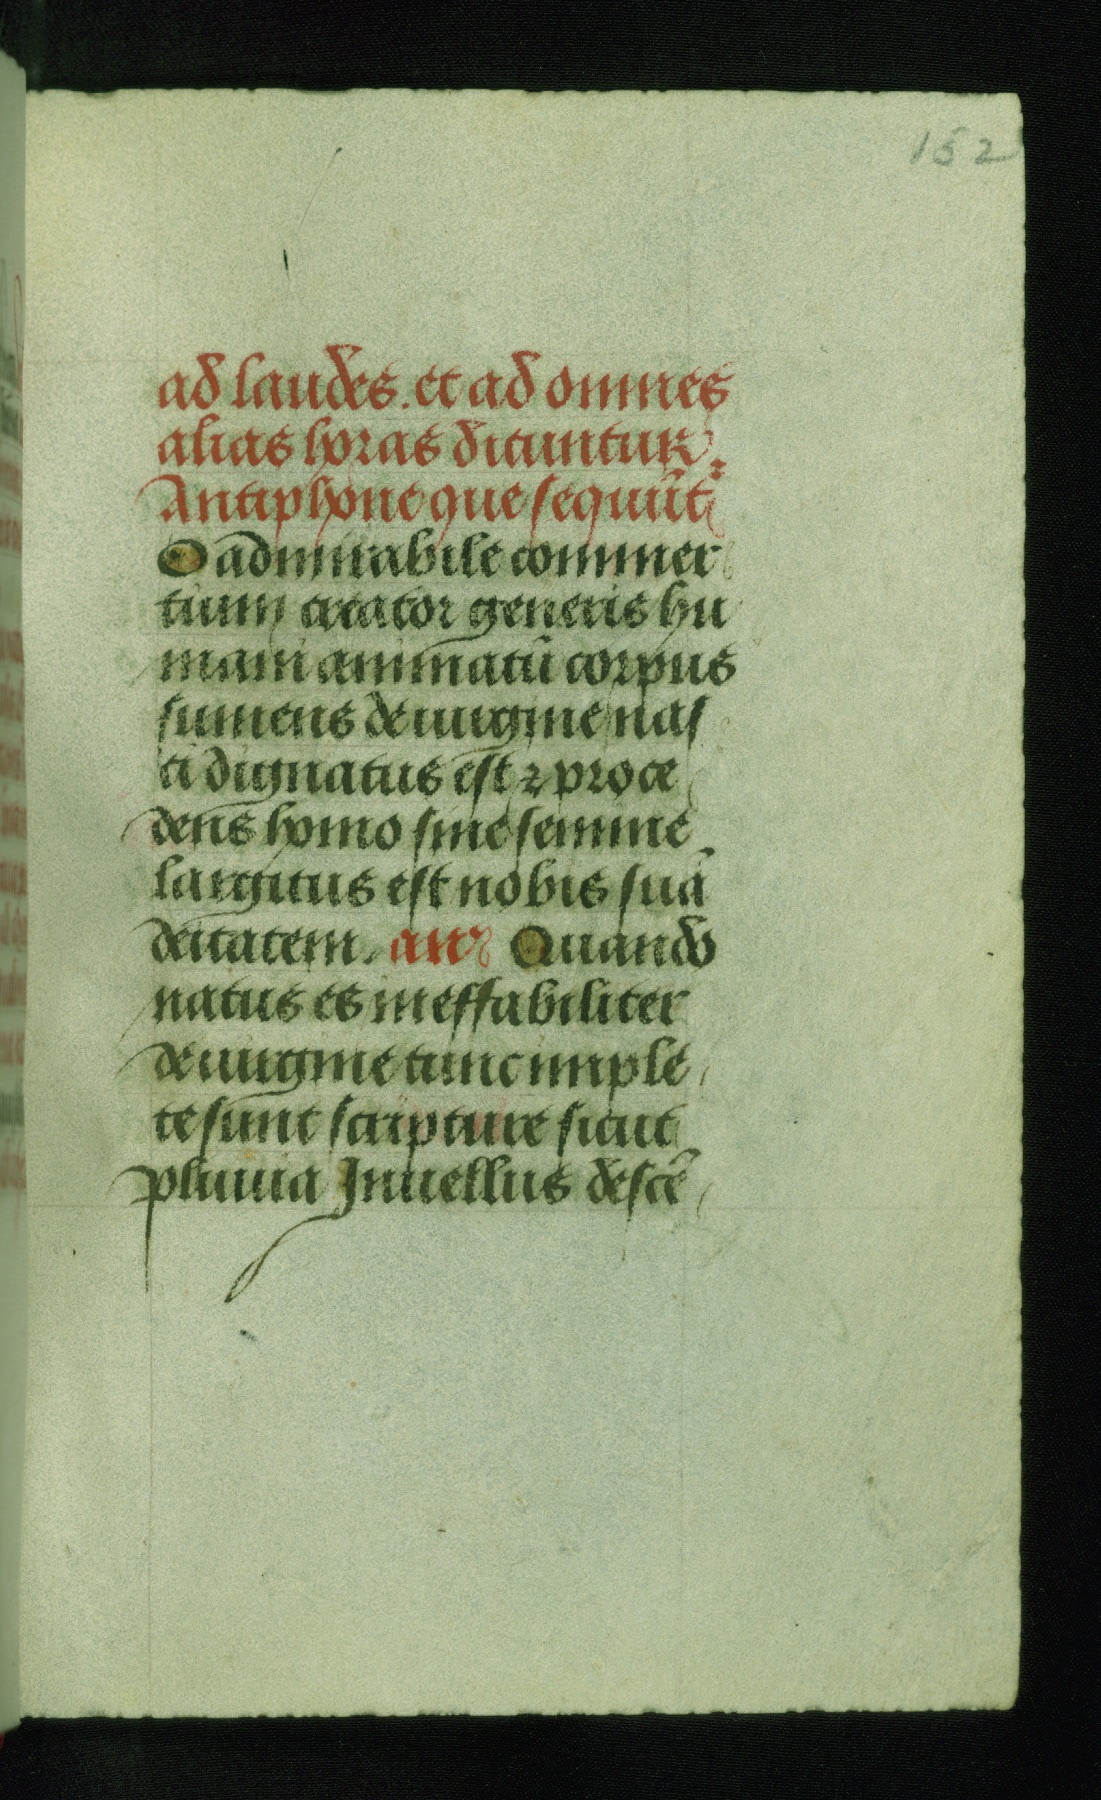 152
ad laudes. et ad omnes
alias horas dicuntur
Antiphone que sequūt᷑
O admirabile commer
tium creator generis hu
mani animatū corpus
sumens de uirgine nas
ci dignatus est ⁊ proce
dens homo sine semine
largitus est nobis suā
deitatem. an᷑ Quando
natus es ineffabiliter
de uirgine tunc imple
te sunt scripture sicut
pluuia In uellus descē